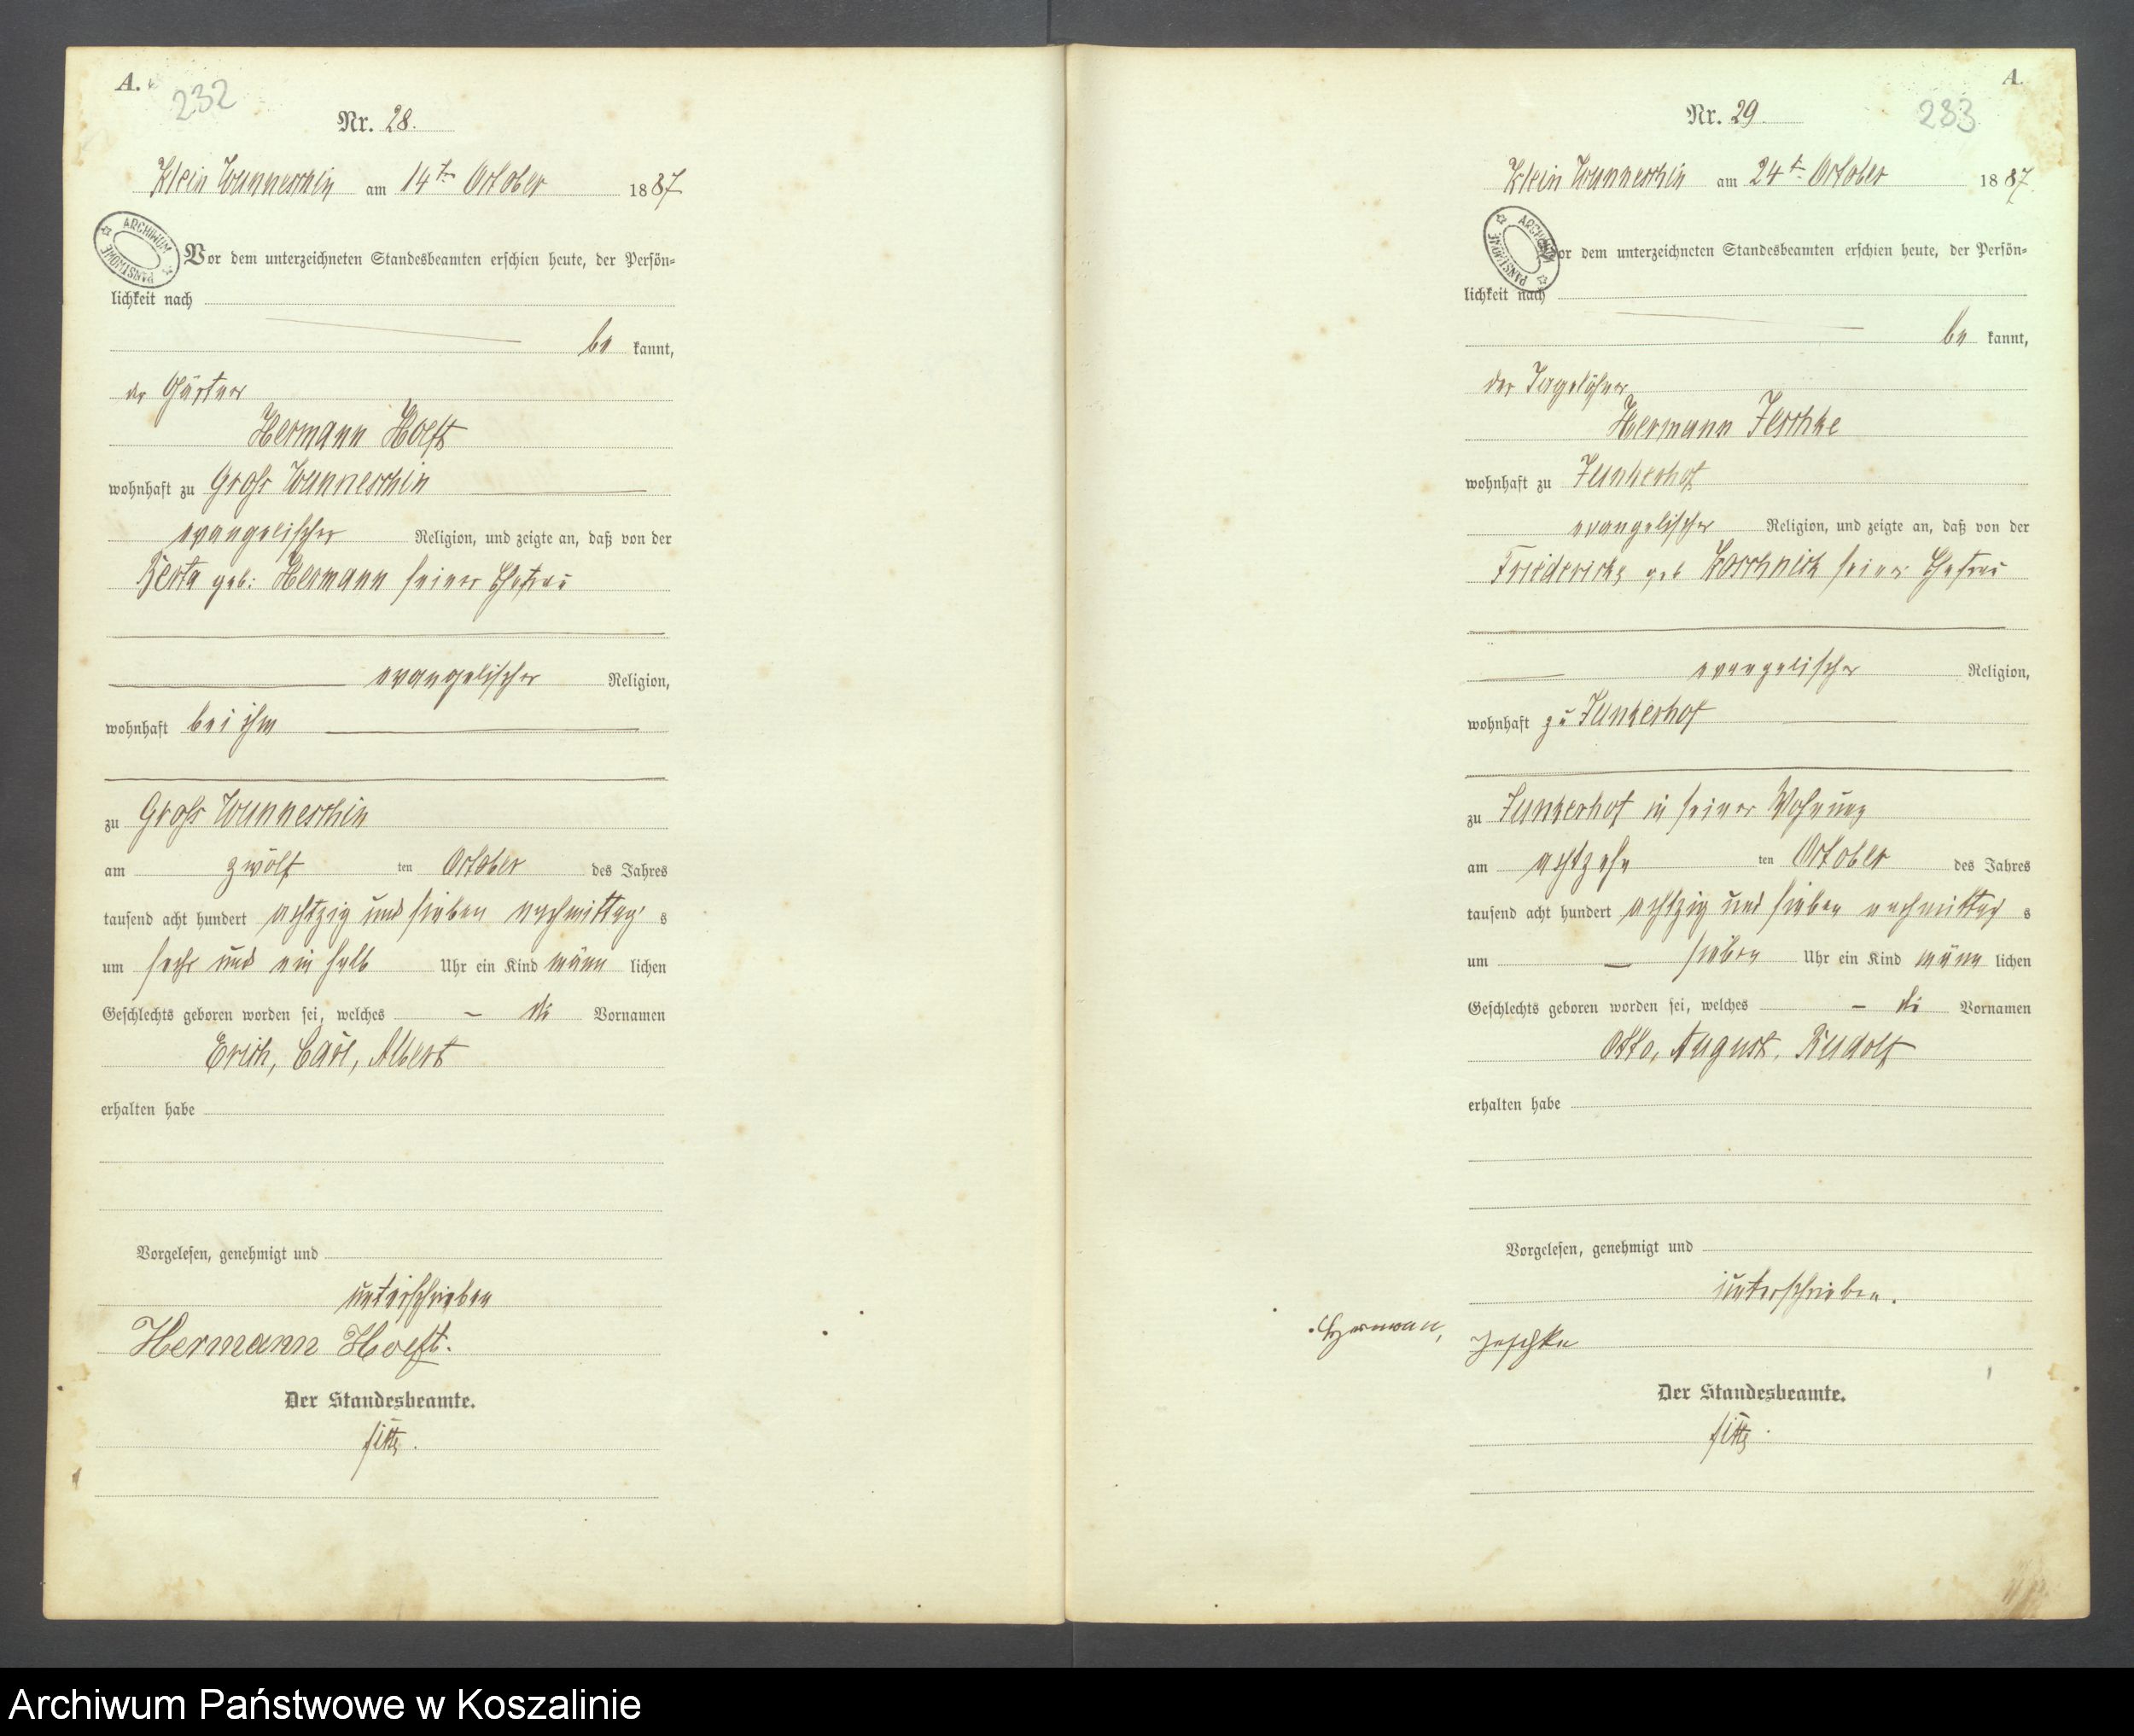 A.
232
Nr. 28.
Klein Wunneschin am 14ten October 1887
ARCHIWUM PAŃSTWOWE
Vor dem unterzeichneten Standesbeamten erschien heute, der Persön=
lichkeit nach
be kannt,
der Gärtner
Hermann Hoeft
wohnhaft zu Groß Wunneschin
evangelischer Religion, und zeigte an, daß von der
Berta geb: Hermann seiner Ehefrau
evangelischer Religion,
wohnhaft bei ihm
zu Groß Wunneschin
am zwölf ten October des Jahres
tausend acht hundert achtzig und sieben nachmittag s
um sechs und ein halb Uhr ein Kind männ lichen
Geschlechts geboren worden sei, welches die Vornamen
Erich, Carl, Albert
erhalten habe
Vorgelesen, genehmigt und
unterschrieben
Hermann Hoeft.
Der Standesbeamte.
A.
233
Nr. 29
Klein Wunneschin am 24t October 1887
ARCHIWUM PAŃSTWOWE
Vor dem unterzeichneten Standesbeamten erschien heute, der Persön=
lichkeit nach
be kannt,
der Tagelöhner
Hermann Jeschke
wohnhaft zu Junkerhof
evangelischer Religion, und zeigte an, daß von der
Friedericke geb Koschnick seiner Ehefrau
evangelischer Religion,
wohnhaft zu Junkerhof
zu Junkerhof in seiner Wohnung
am achtzehn ten October des Jahres
tausend acht hundert achtzig und sieben nachmittag s
um sieben Uhr ein Kind männ lichen
Geschlechts geboren worden sei, welches die Vornamen
Otto, August, Rudolf
erhalten habe
Vorgelesen, genehmigt und
unterschrieben.
Herman, Jeschke
Der Standesbeamte.
Archiwum Państwowe w Koszalinie